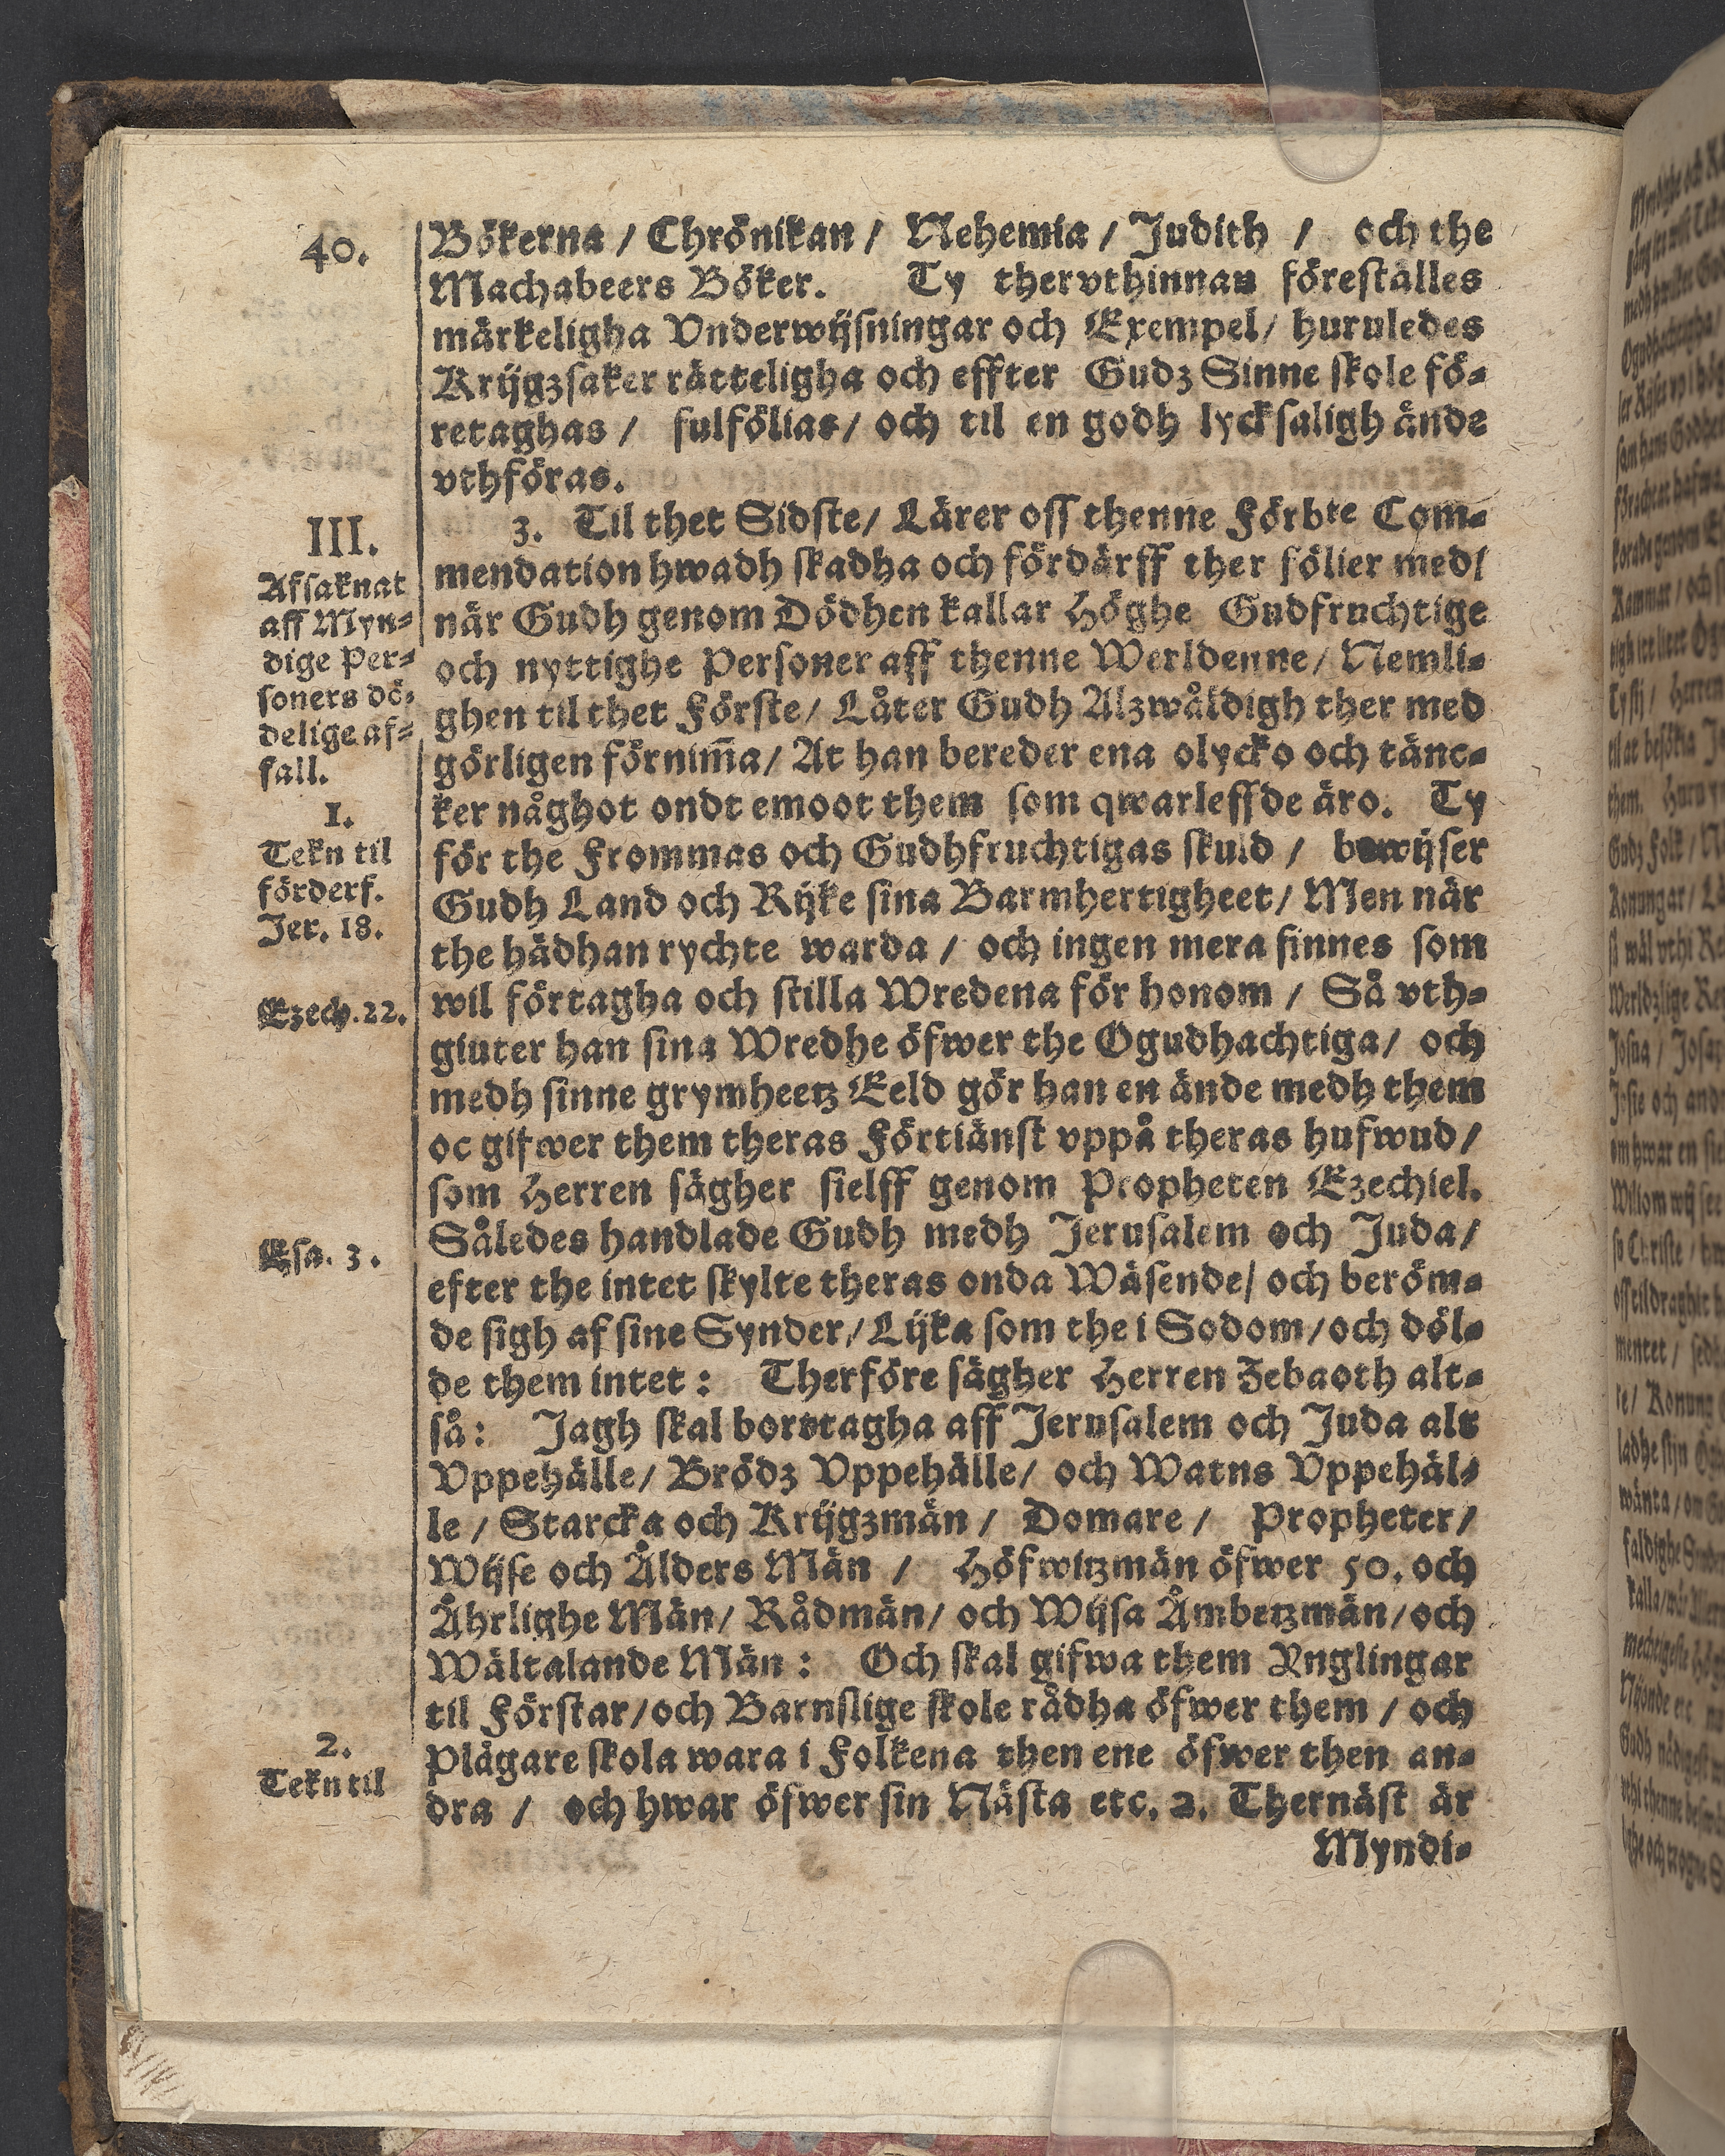 40.
Bökerna / Chrönikan / Nehemia / Judith / och the
Machabeers Böker. Ty thervthinnan föreställes
märkeligha Vnderwijsningar och Exempel / huruledes
Krijgzsaker rätteligha och effter Gudz Sinne skole fö-
retaghas / fulfölias / och til en godh lycksaligh ände
vthföras.
3. Til thet Sidste / Lärer oss thenne Förbte Com-
mendation hwadh skadha och fördärff ther fölier med /
när Gudh genom Dödhen kallar Höghe Gudfruchtige
och nyttighe Personer aff thenne Werldenne / Nemli-
ghen til thet Förste / Låter Gudh Alzwåldigh ther med
görligen förnim̄a / At han bereder ena olycko och tänc-
ker någhot ondt emoot them som qwarleffde äro. Ty
för the Frommas och Gudhfruchtigas skuld / bewijser
Gudh Land och Rijke sina Barmhertigheet / Men när
the hädhan rychte warda / och ingen mera finnes som
wil förtagha och stilla Wredena för honom / Så vth-
giuter han sina Wredhe öfwer the Ogudhachtiga / och
medh sinne grymheetz Eeld gör han en ände medh them
oc gifwer them theras Förtiänst vppå theras hufwud /
som Herren sägher sielff genom Propheten Ezechiel.
Således handlade Gudh medh Jerusalem och Juda /
efter the intet skylte theras onda Wäsende / och beröm-
de sigh af sine Synder / Lijka som the i Sodom / och döl-
de them intet : Therföre sägher Herren Zebaoth alt-
så : Jagh skal borttagha aff Jerusalem och Juda alt
Vppehälle / Brödz Vppehälle / och Watns Vppehäl-
le / Starcka och Krijgzmän / Domare / Propheter /
Wijse och Ålders Män / Höfwitzmän öfwer 50. och
Ährlighe Män / Rådmän / och Wijsa Ämbetzmän / och
Wältalande Män : Och skal gifwa them Ynglingar
til Förstar / och Barnslige skole rådha öfwer them / och
Plågare skola wara i Folkena then ene öfwer then an-
dra / och hwar öfwer sin Nästa etc. 2. Thernäst är
Myndi-
III.
Afsaknat
aff Myn-
dige Per-
soners dö-
delige af-
fall.
1.
Tekn til
förderf.
Jer. 18.
Ezech. 22.
Esa. 3.
2.
Tekn til